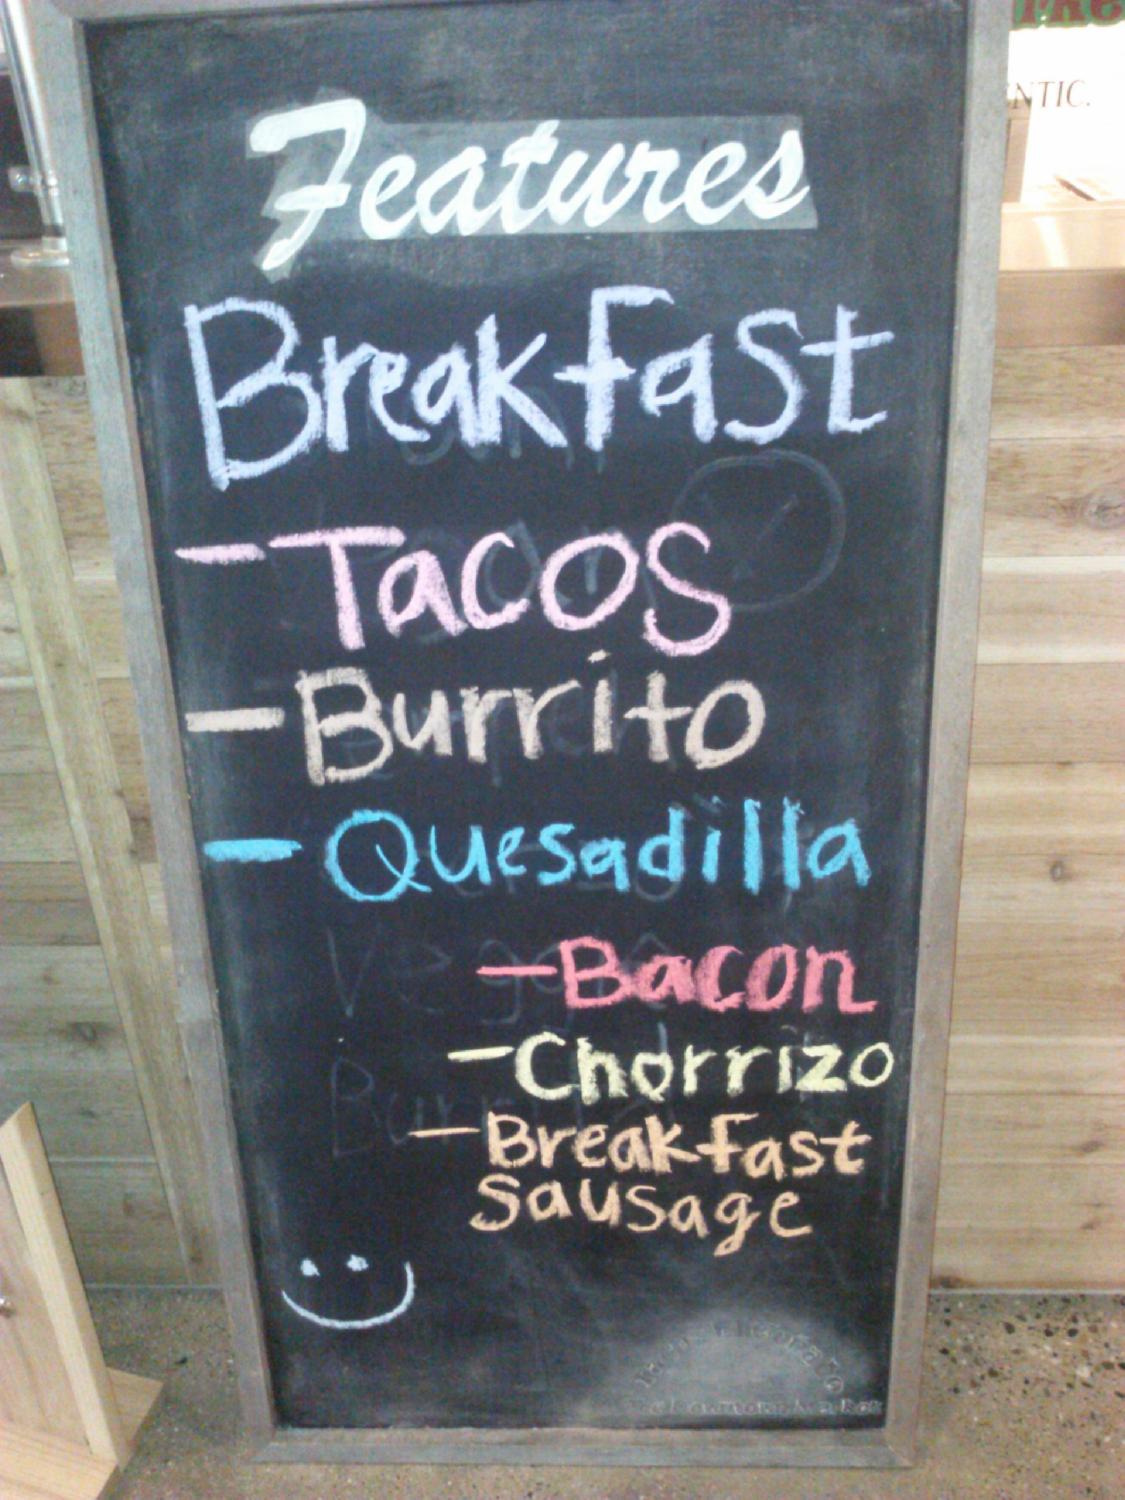 NTIC.
Features
Breakfast
-Tacos
-Burrito
-Quesadilla
-Bacon
-Chorrizo
-Breakfast
Sausage